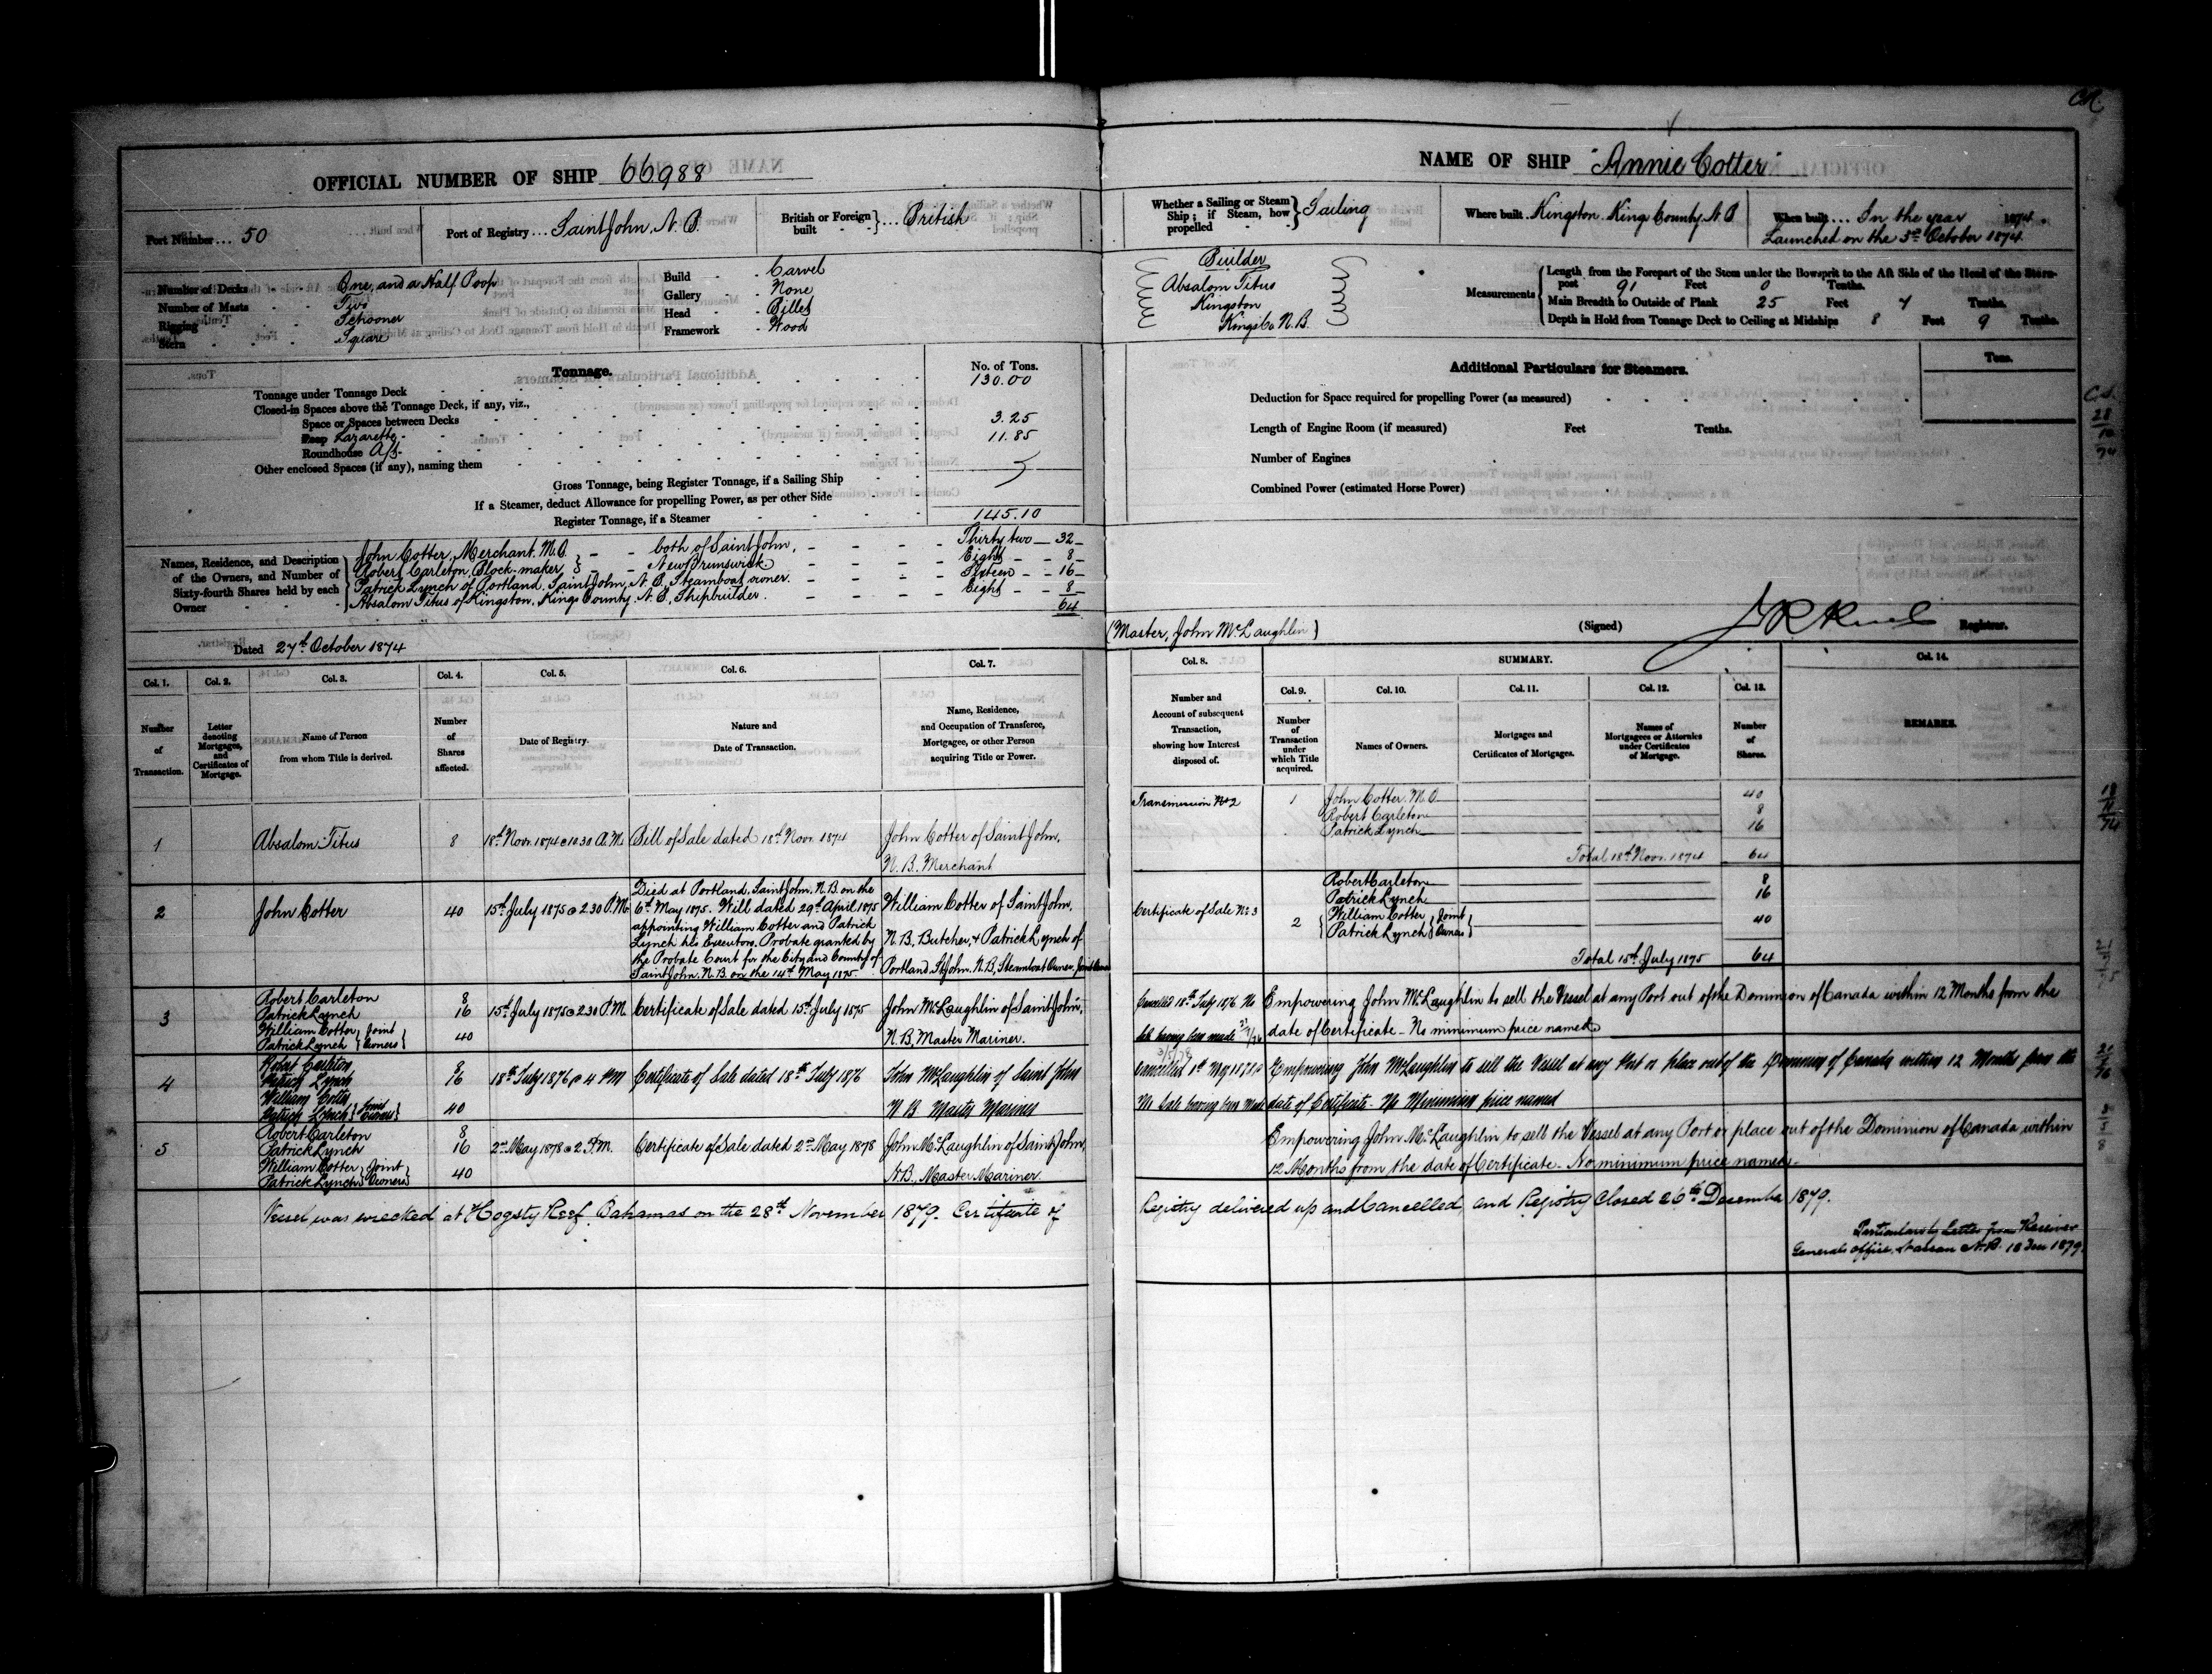 OFFICIAL NUMBER OF SHIP 66988
Port Number ... 50
Port of Registry ... Saint John, N.B.
British or Foreign built } ... British
Number of Decks One, and a Half Poop
Number of Masts Two
Rigging Schooner
Stern Square
Build Carvel
Gallery None
Head Billet
Framework Wood
Tonnage.
No. of Tons.
Tonnage under Tonnage Deck 130.00
Closed-in Spaces above the Tonnage Deck, if any, viz.,
Space or Spaces between Decks
Poop Lazarette 3.25
Roundhouse Aft 11.85
Other enclosed Spaces (if any), naming them
Gross Tonnage, being Register Tonnage, if a Sailing Ship
If a Steamer, deduct Allowance for propelling Power, as per other Side
Register Tonnage, if a Steamer 145.10
Names, Residence, and Description of the Owners, and Number of Sixty-fourth Shares held by each Owner
John Cotter, Merchant, M.O. } both of Saint John, Thirty two 32
Robert Carleton, Block-maker } New Brunswick. Eight 8
Patrick Lynch of Portland, Saint John, N.B., Steamboat owner. Sixteen 16
Absalom Titus of Kingston, Kings County, N.B., Shipbuilder. Eight 8
64
Dated 27th October 1874
Col. 1. Col. 2. Col. 3. Col. 4. Col. 5. Col. 6. Col. 7.
Number of Transaction.
Letter denoting Mortgages, and Certificates of Mortgage.
Name of Person from whom Title is derived.
Number of Shares affected.
Date of Registry.
Nature and Date of Transaction.
Name, Residence, and Occupation of Transferee, Mortgagee, or other Person acquiring Title or Power.
1 Absalom Titus 8 18th Novr. 1874 @ 10.30 A.M. Bill of Sale dated 18th Novr. 1874 John Cotter of Saint John,
N.B. Merchant
2 John Cotter 40 15th July 1875 @ 2.30 P.M.
Died at Portland, Saint John, N.B. on the
6th May 1875. Will dated 29th April 1875
appointing William Cotter and Patrick
Lynch his Executors. Probate granted by
the Probate Court for the City and County of
Saint John, N.B. on the 14th May 1875.
William Cotter of Saint John,
N.B. Butcher, & Patrick Lynch of
Portland, St John, N.B., Steamboat Owner, Joint Owners
3 Robert Carleton 8
Patrick Lynch 16
William Cotter } Joint
Patrick Lynch } Owners } 40
15th July 1875 @ 2.30 P.M. Certificate of Sale dated 15th July 1875 John McLaughlin of Saint John,
N.B. Master Mariner.
4 Robert Carleton 8
Patrick Lynch 16
William Cotter
Patrick Lynch } Joint Owners } 40
18th July 1876 @ 4 PM Certificate of Sale dated 18th July 1876 John McLaughlin of Saint John
N B Master Mariner
5 Robert Carleton 8
Patrick Lynch 16
William Cotter } Joint
Patrick Lynch } Owners } 40
2nd May 1878 @ 2 P.M. Certificate of Sale dated 2nd May 1878 John McLaughlin of Saint John,
N.B., Master Mariner.
Vessel was wrecked at Hogsty Reef, Bahamas on the 28th November 1879. Certificate of
NAME OF SHIP "Annie Cotter"
Whether a Sailing or Steam Ship; if Steam, how propelled } Sailing
Where built Kingston, Kings County, N.B
When built ... In the year 1874.
Launched on the 3rd October 1874
Builder
Absalom Titus
Kingston
Kings Co N.B.
Measurements
Length from the Forepart of the Stem under the Bowsprit to the Aft Side of the Head of the Stern-
post 91 Feet 0 Tenths.
Main Breadth to Outside of Plank 25 Feet 7 Tenths.
Depth in Hold from Tonnage Deck to Ceiling at Midships 8 Feet 9 Tenths.
Additional Particulars for Steamers.
Tons.
Deduction for Space required for propelling Power (as measured)
Length of Engine Room (if measured) Feet Tenths.
Number of Engines
Combined Power (estimated Horse Power)
(Master, John McLaughlin)
(Signed) Registrar.
Col. 8. SUMMARY. Col. 14.
Col. 9. Col. 10. Col. 11. Col. 12. Col. 13.
Number and Account of subsequent Transaction, showing how Interest disposed of.
Number of Transaction under which Title acquired.
Names of Owners.
Mortgages and Certificates of Mortgages.
Names of Mortgagees or Attornies under Certificates of Mortgage.
Number of Shares.
REMARKS.
Transmission No 2 1 John Cotter. M.O. 40
Robert Carleton 8
Patrick Lynch 16
Total 18th Novr. 1874 64
Robert Carleton 8
Patrick Lynch 16
Certificate of Sale No 3 2 { William Cotter } Joint
Patrick Lynch } Owners } 40
Total 15th July 1875 64
Cancelled 18th July 1876 No Empowering John McLaughlin to sell the Vessel at any Port out of the Dominion of Canada within 12 Months from the
Sale having been made date of Certificate - No minimum price named
Cancelled 1st May 1878 Empowering John McLaughlin to sell the Vessel at any Port or place out of the Dominion of Canada within 12 Months from the
No Sale having been Made date of Certificate. No Minimum price named
Empowering John McLaughlin to sell the Vessel at any Port or place out of the Dominion of Canada, within
12 Months from the date of Certificate - No minimum price named.
Registry delivered up and Cancelled, and Registry Closed 26th December 1879.
Particulars by Letter from Receiver
Generals office, Nassau N.P. 18 Dec 1879.